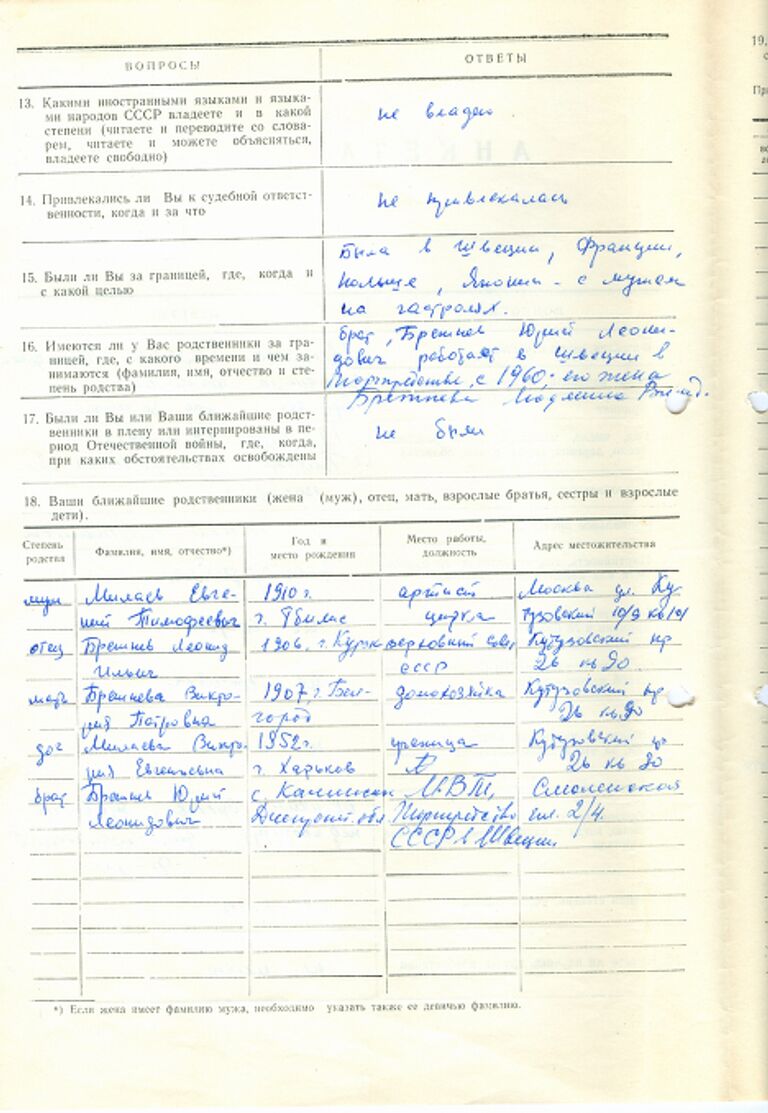 ВОПРОСЫ
ОТВЕТЫ
13. Какими иностранными языками и языка-
ми народов СССР владеете и в какой
степени (читаете и переводите со слова-
рем, читаете и можете объясняться,
владеете свободно)
не владею
14. Привлекались ли Вы к судебной ответст-
венности, когда и за что
не привлекалась
15. Были ли Вы за границей, где, когда и
с какой целью
Была в Швеции, Франции,
Польше, Японии - с мужем
на гастролях.
16. Имеются ли у Вас родственники за гра-
ницей, где, с какого времени и чем за-
нимаются (фамилия, имя, отчество и сте-
пень родства)
брат, Брежнев Юрий Леони-
дович работает в Швеции в
Торгпредстве, с 1960, его жена
Брежнева Людмила
17. Были ли Вы или Ваши ближайшие родст-
венники в плену или интернированы в пе-
риод Отечественной войны, где, когда,
при каких обстоятельствах освобождены
не были
18. Ваши ближайшие родственники (жена (муж), отец, мать, взрослые братья, сестры и взрослые
дети).
Степень
родства
Фамилия, имя, отчество*)
Год и
место рождения
Место работы,
должность
Адрес местожительства
муж Милаев Евге- 1910 г. артист Москва ул. Ку-
ний Тимофеевич г. Тбилис цирка тузовский 10/9 кв 101
отец Брежнев Леонид 1906, г. Курск верховный Кутузовский пр
Ильич СССР 26 кв 90.
мать Брежнева Викто- 1907, г. Бел- домохозяйка Кутузовский пр
рия Петровна город 26 кв 90
доч Милаева Викто- 1952 г. ученица Кутузовский
рия Евгеньевна г. Харьков 26 кв 90
брат Брежнев Юрий с. Каменское МВТ, Смоленская
Леонидович Днепропет. обл. Торгпредство пл. 2/4.
СССР в Швеции.
*) Если жена имеет фамилию мужа, необходимо указать также ее девичью фамилию.
19.